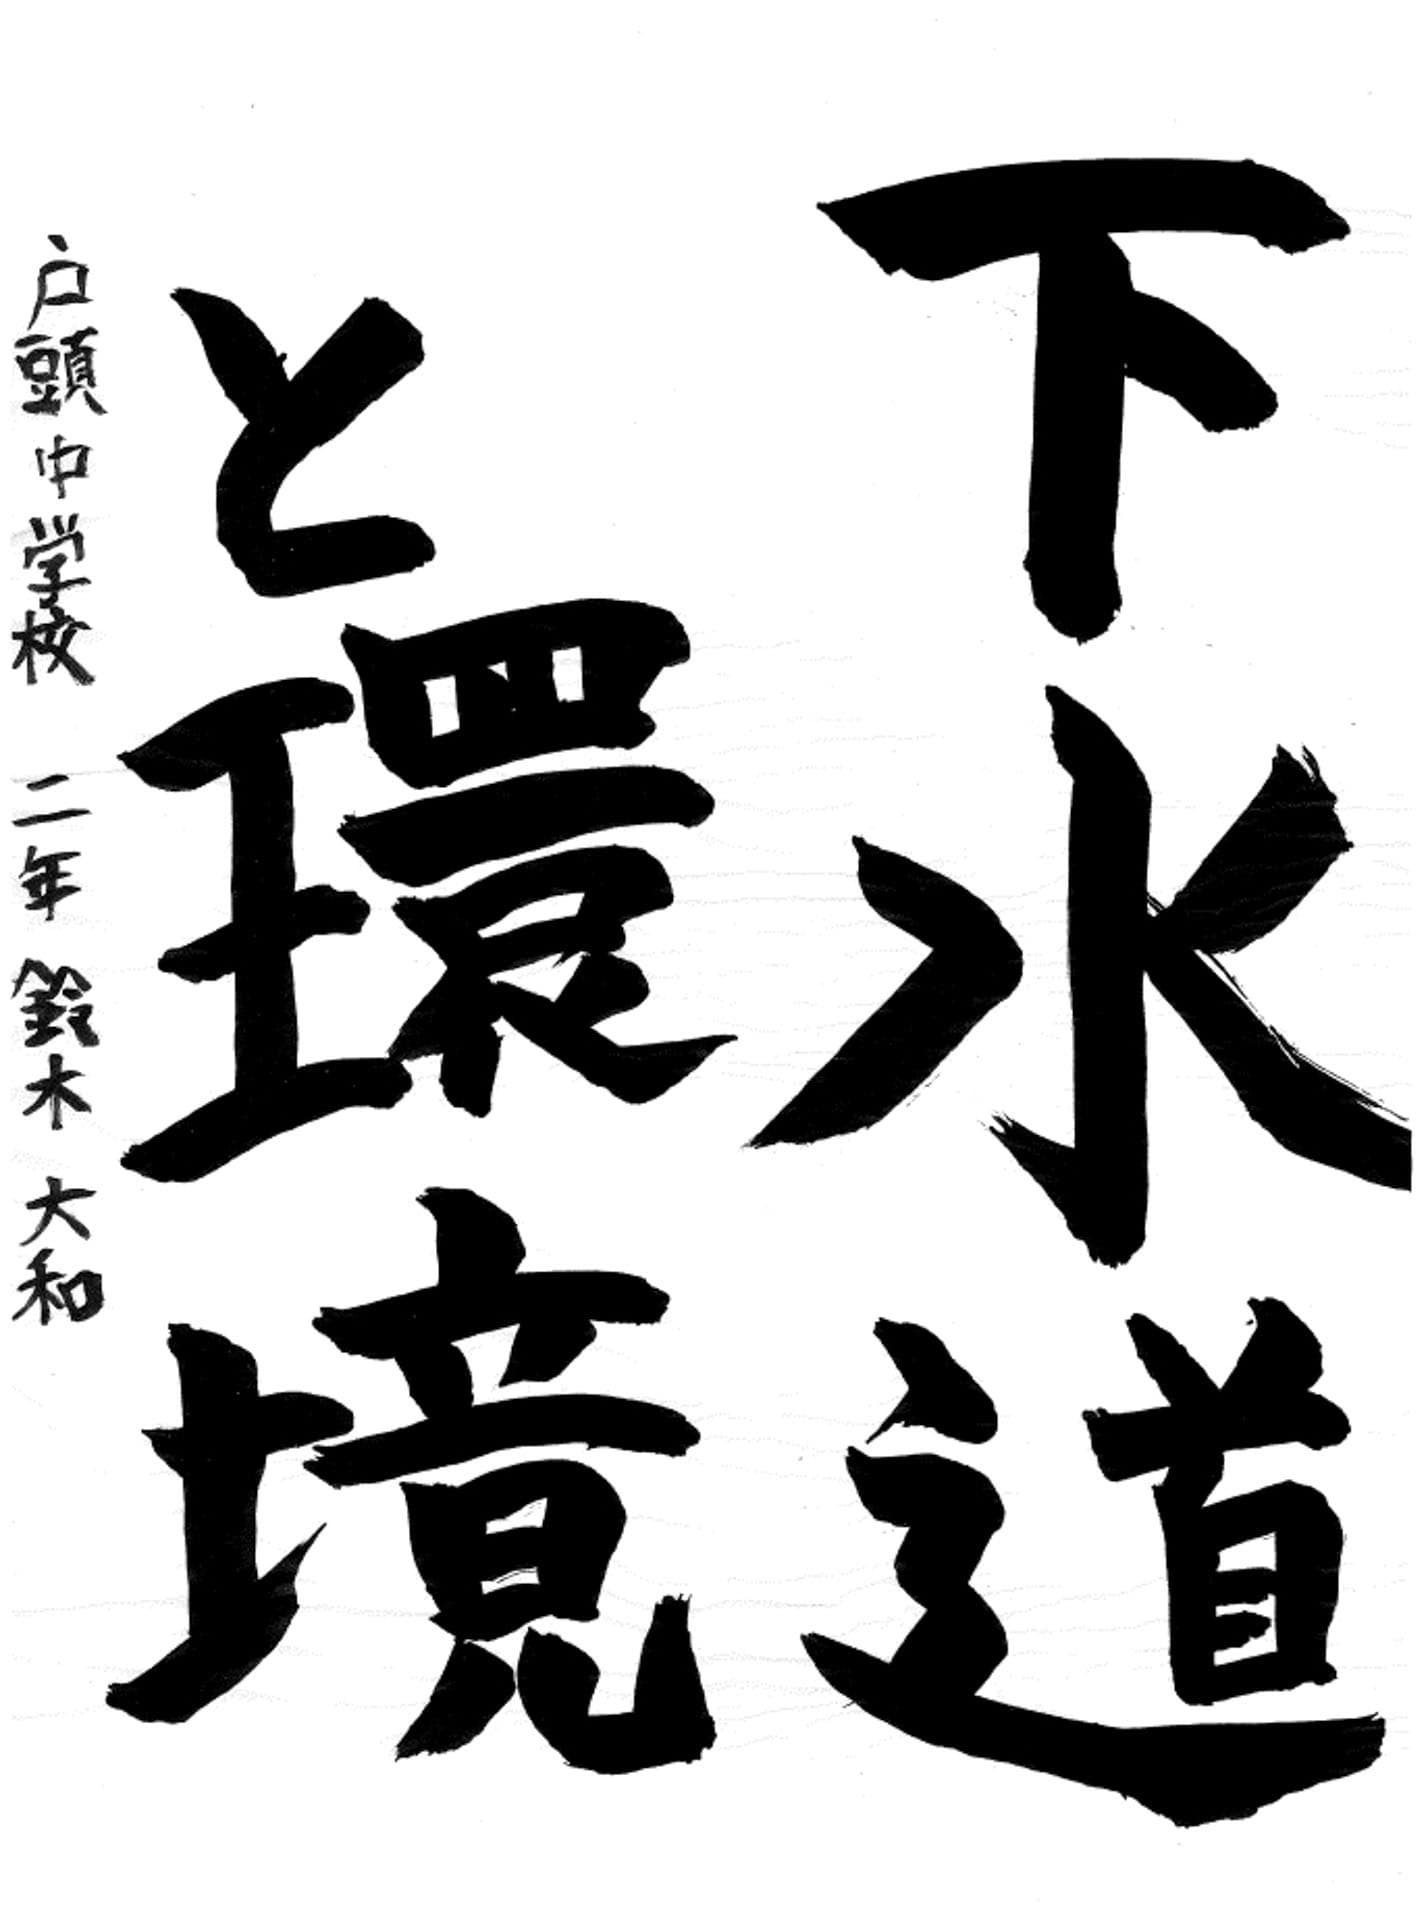 下水道
と環境
戸頭中学校 二年 鈴木 大和